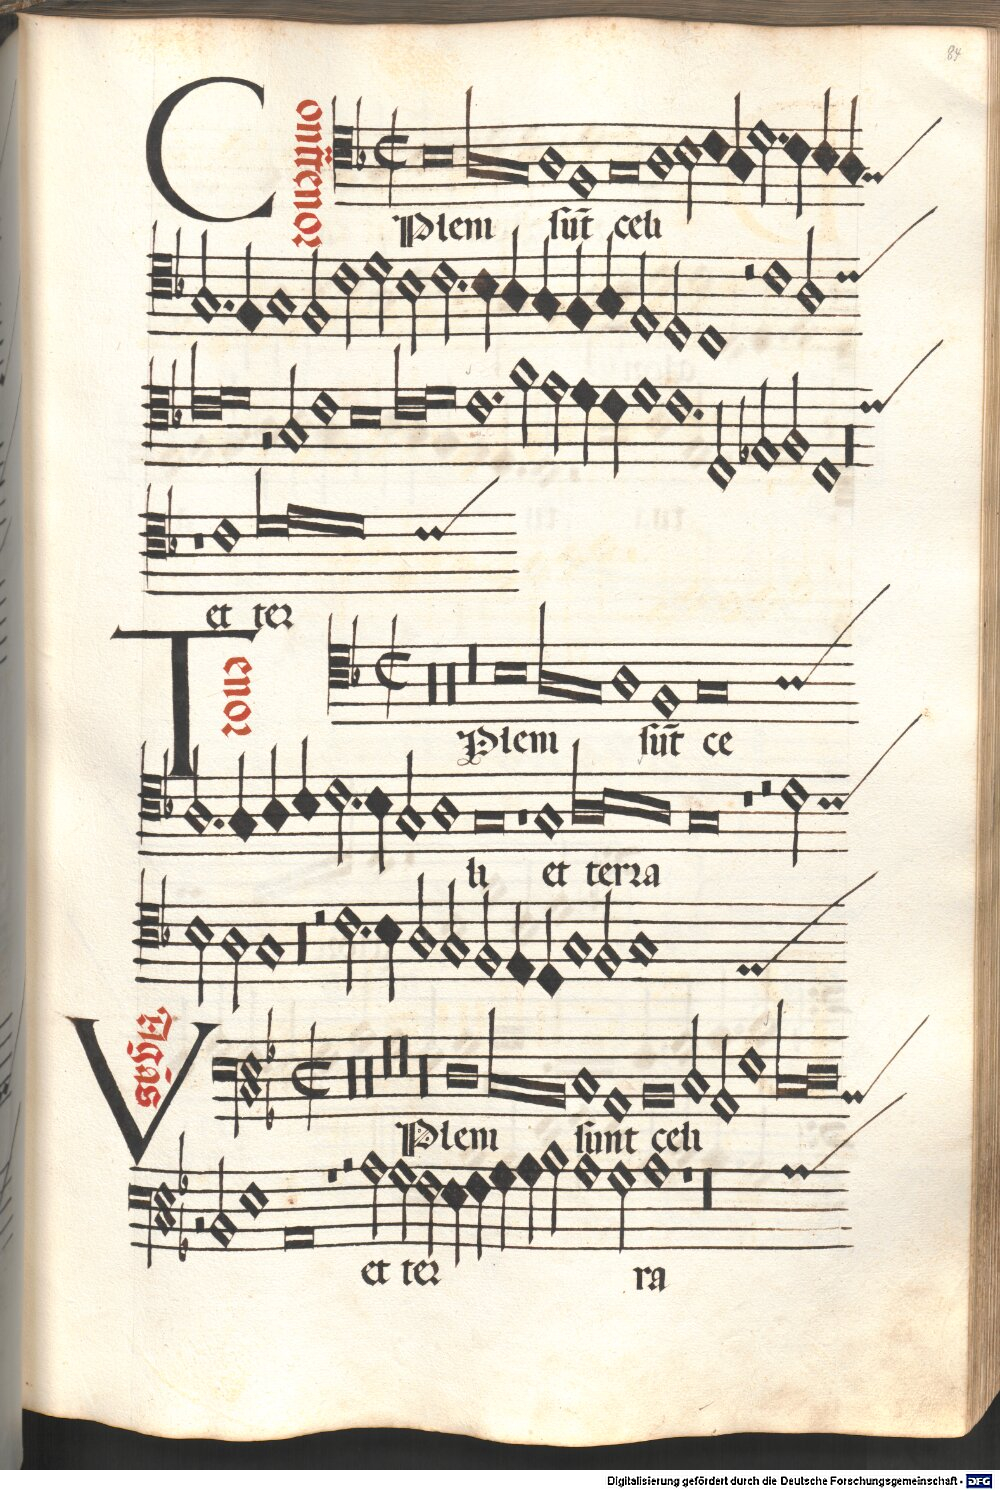 84
Contratenor
Plem sūt celi
et ter
Tenor
Plem sūt ce
li et terra
Vagās
Plem sunt celi
et ter ra
Digitalisierung gefördert durch die Deutsche Forschungsgemeinschaft - DFG